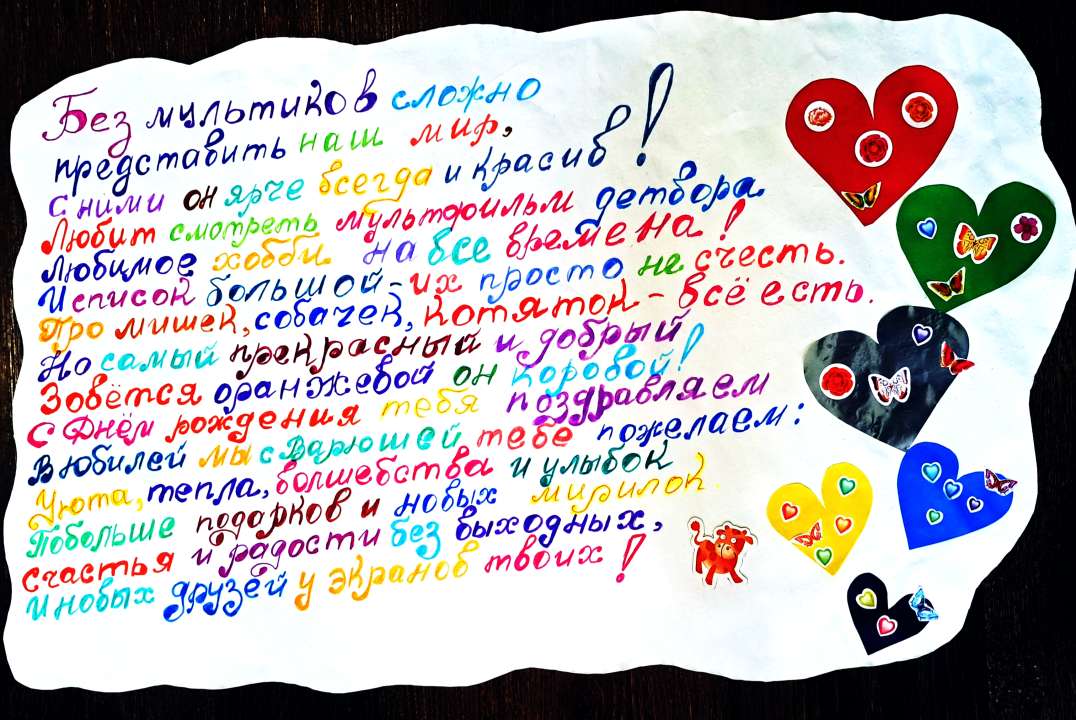 Без мультиков сложно
представить наш мир,
С ними он ярче всегда и красив!
Любит смотреть мультфильм детвора
Любимое хобби на все времена!
И список большой - их просто не счесть.
Про мишек, собачек, котяток - всё есть.
Но самый прекрасный и добрый
Зовётся оранжевой он коровой!
С Днём рождения тебя поздравляем
В юбилей мы с Варюшей тебе пожелаем:
Уюта, тепла, волшебства и улыбок
Побольше подарков и новых мирилок.
Счастья и радости без выходных,
И новых друзей у экранов твоих!